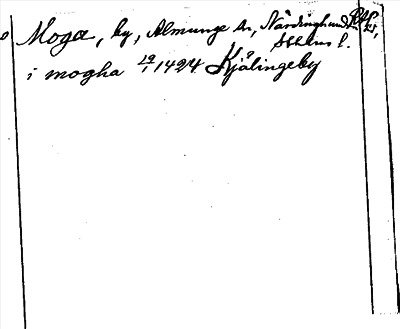 Moga, by, Almunge sn, Närdinghundra
Sthlms l.
i mogha 19/1 1424 Kjälingeby